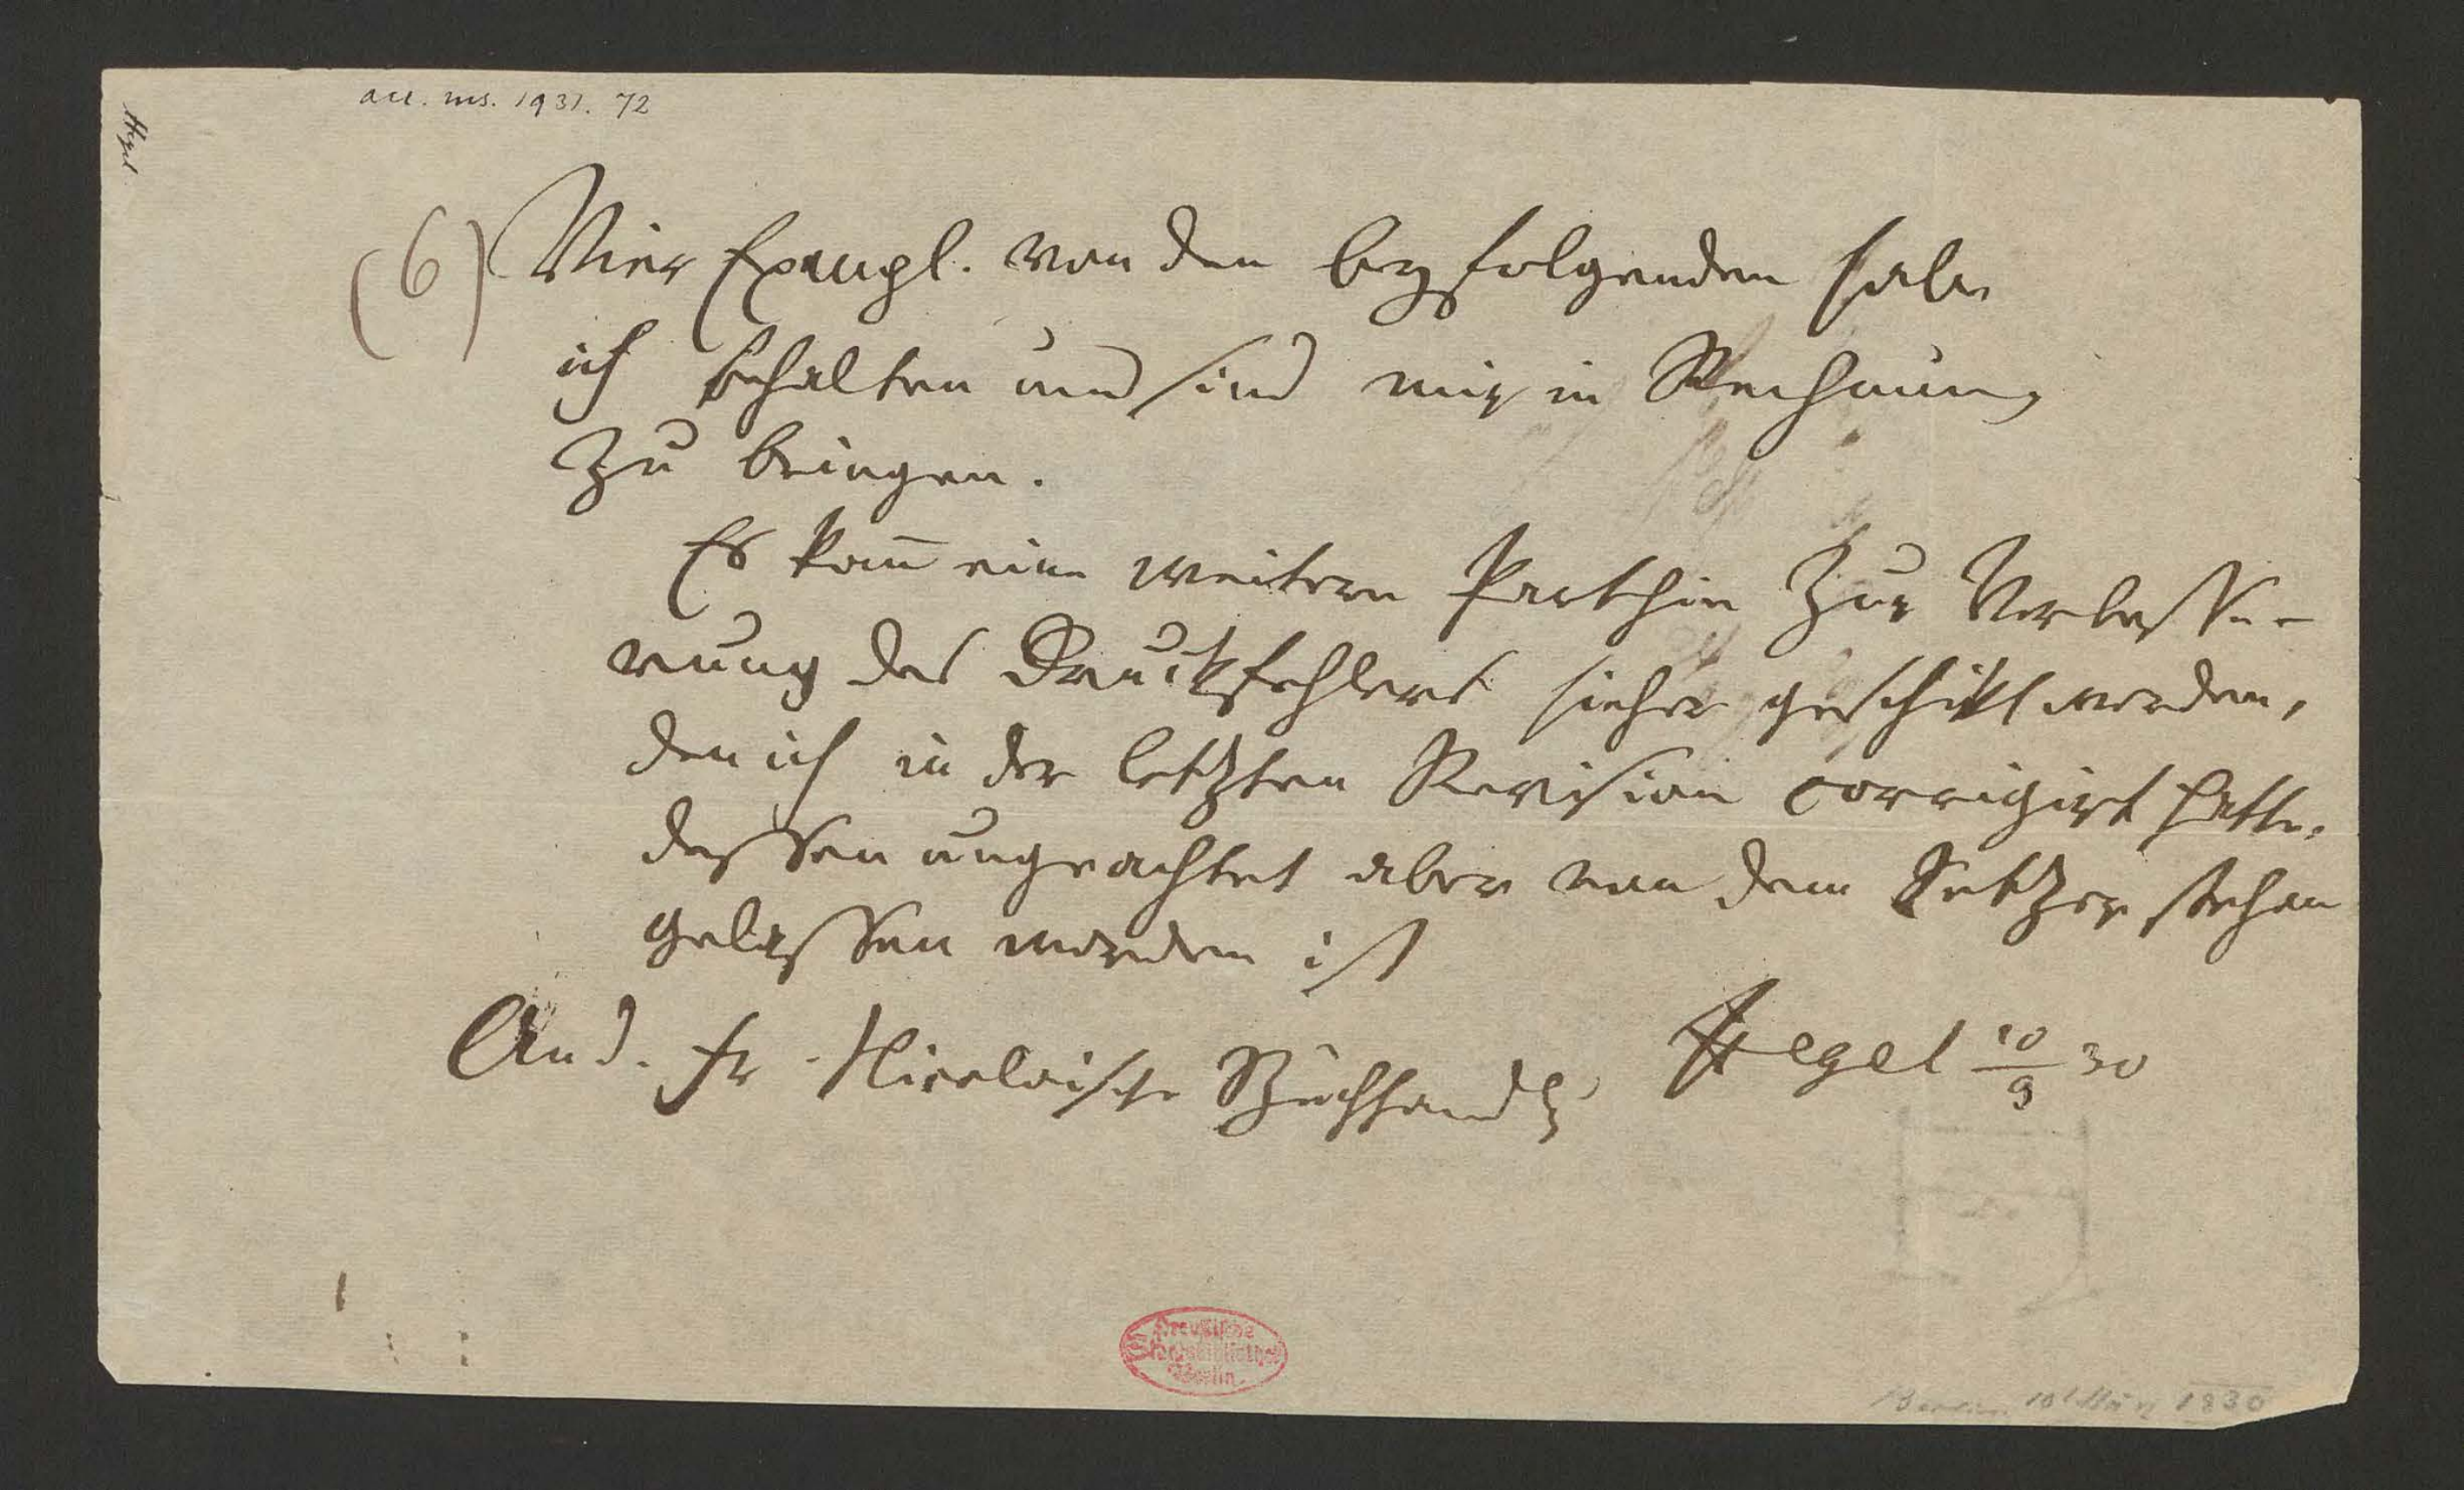 acc. ms. 1931. 72
Hegel
(6) Vier Exempl. von den beyfolgenden habe
ich behalten und sind mir in Rechnung
zu bringen.
Es kan̄ eine weitere Parthie zur Verbesse-
rung des Druckfehlers hieher geschikt werden,
den ich in der letzten Revision corrigirt hatte,
dessen ungeachtet aber von dem Setzer stehen
gelassen worden ist
An d. Fr. Nicolaische Buchhandlg
Hegel 10/9 30
Preußische
Staatsbibliothek
Berlin
Berlin, 10. März 1830